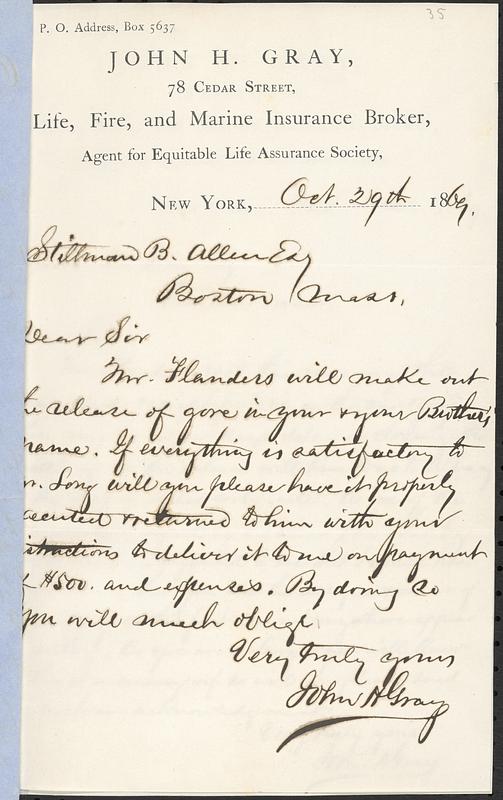 35
P. O. Address, Box 5637
JOHN H. GRAY,
78 Cedar Street,
Life, Fire, and Marine Insurance Broker,
Agent for Equitable Life Assurance Society,
New York, Oct. 29th 1869.
Stillman B. Allen Esq
Boston Mass.
Dear Sir
Mr. Flanders will make out
he release of gore in your & your Brother's
name. If everything is satisfactory to
r. Long will you please have it properly
ecuted & returned to him with your
structions to deliver it to me on payment
f $500. and expenses. By doing so
you will much oblige
Very truly yours
John H Gray